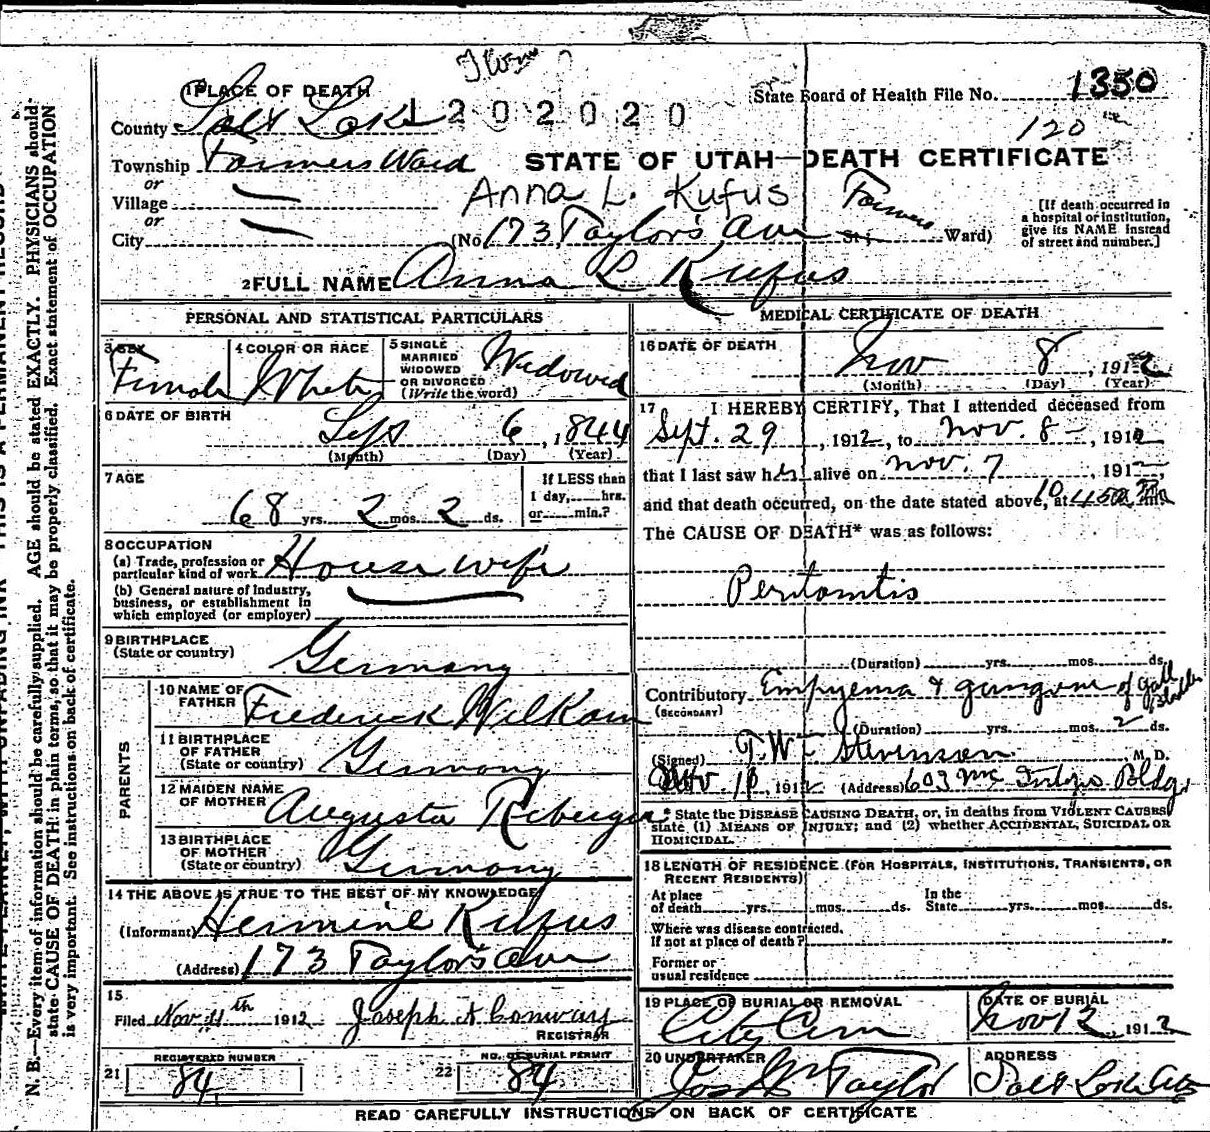 1 PLACE OF DEATH
1202020
State Board of Health File No. 1350
County Salt Lake
120
Township Farmers Ward
STATE OF UTAH—DEATH CERTIFICATE
or
Village
Anna L. Kufus
Farmers
or
City
(No. 173 Taylor's Ave St; Ward)
[If death occurred in
a hospital or institution,
give its NAME instead
of street and number.]
2 FULL NAME Anna L Kufus
PERSONAL AND STATISTICAL PARTICULARS
3 SEX
Female
4 COLOR OR RACE
White
5 SINGLE
MARRIED
WIDOWED
OR DIVORCED
(Write the word)
Widowed
6 DATE OF BIRTH
Sept 6, 1844
(Month) (Day) (Year)
7 AGE
68 yrs. 2 mos. 2 ds.
If LESS than
1 day, hrs.
or min.?
8 OCCUPATION
(a) Trade, profession or
particular kind of work House wife
(b) General nature of industry,
business, or establishment in
which employed (or employer)
9 BIRTHPLACE
(State or country)
Germany
PARENTS
10 NAME OF
FATHER Frederick
11 BIRTHPLACE
OF FATHER
(State or country) Germany
12 MAIDEN NAME
OF MOTHER Augusta
13 BIRTHPLACE
OF MOTHER
(State or country) Germany
14 THE ABOVE IS TRUE TO THE BEST OF MY KNOWLEDGE
(Informant) Hermine Kufus
(Address) 173 Taylor's Ave
15
Filed Nov. 11th 1912 Joseph A Conway
REGISTRAR
REGISTERED NUMBER
21 84
NO. OF BURIAL PERMIT
22 84
MEDICAL CERTIFICATE OF DEATH
16 DATE OF DEATH
Nov 8, 1912
(Month) (Day) (Year)
17 I HEREBY CERTIFY, That I attended deceased from
Sept. 29, 1912, to Nov. 8, 1912
that I last saw her alive on Nov. 7, 191
and that death occurred, on the date stated above, at
The CAUSE OF DEATH* was as follows:
Peritonitis
(Duration) yrs. mos. ds.
Contributory Empyema & gangrene of gall bladder
(SECONDARY)
(Duration) yrs. mos. 2 ds.
(Signed) T. W. Stevenson M. D.
Nov. 1912 (Address) 603 Bldg.
* State the DISEASE CAUSING DEATH, or, in deaths from VIOLENT CAUSES,
state (1) MEANS OF INJURY; and (2) whether ACCIDENTAL, SUICIDAL OR
HOMICIDAL.
18 LENGTH OF RESIDENCE (FOR HOSPITALS, INSTITUTIONS, TRANSIENTS, OR
RECENT RESIDENTS)
At place
of death yrs. mos. ds.
In the
State yrs. mos. ds.
Where was disease contracted,
If not at place of death?
Former or
usual residence
19 PLACE OF BURIAL OR REMOVAL
City Cem
DATE OF BURIAL
Nov 12, 1912
20 UNDERTAKER
Jos Wm Taylor
ADDRESS
Salt Lake City
READ CAREFULLY INSTRUCTIONS ON BACK OF CERTIFICATE
N. B.—Every item of information should be carefully supplied. AGE should be stated EXACTLY. PHYSICIANS should
state CAUSE OF DEATH in plain terms, so that it may be properly classified. Exact statement of OCCUPATION
is very important. See instructions on back of certificate.